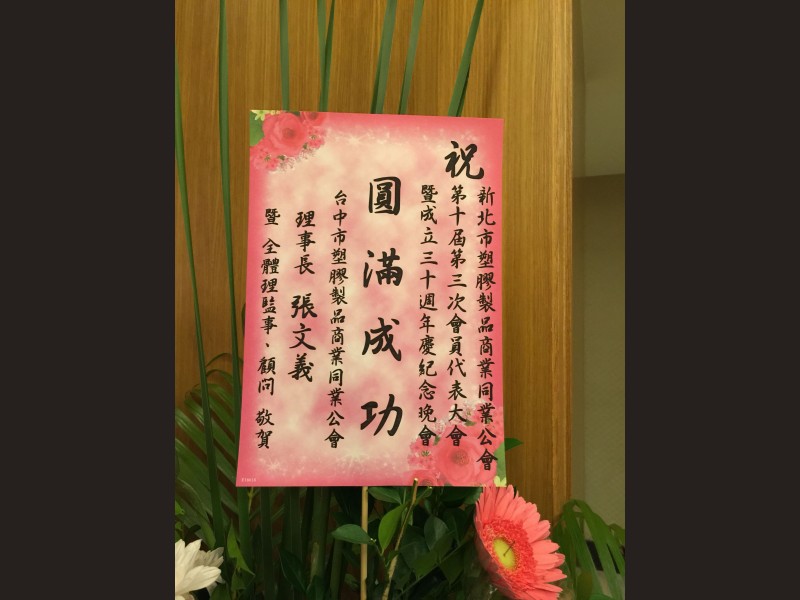 祝
新北市塑膠製品商業同業公會
第十屆第三次會員代表大會
暨成立三十週年慶紀念晚會
圓滿成功
台中市塑膠製品商業同業公會
理事長 張文義
暨 全體理監事、顧問 敬賀